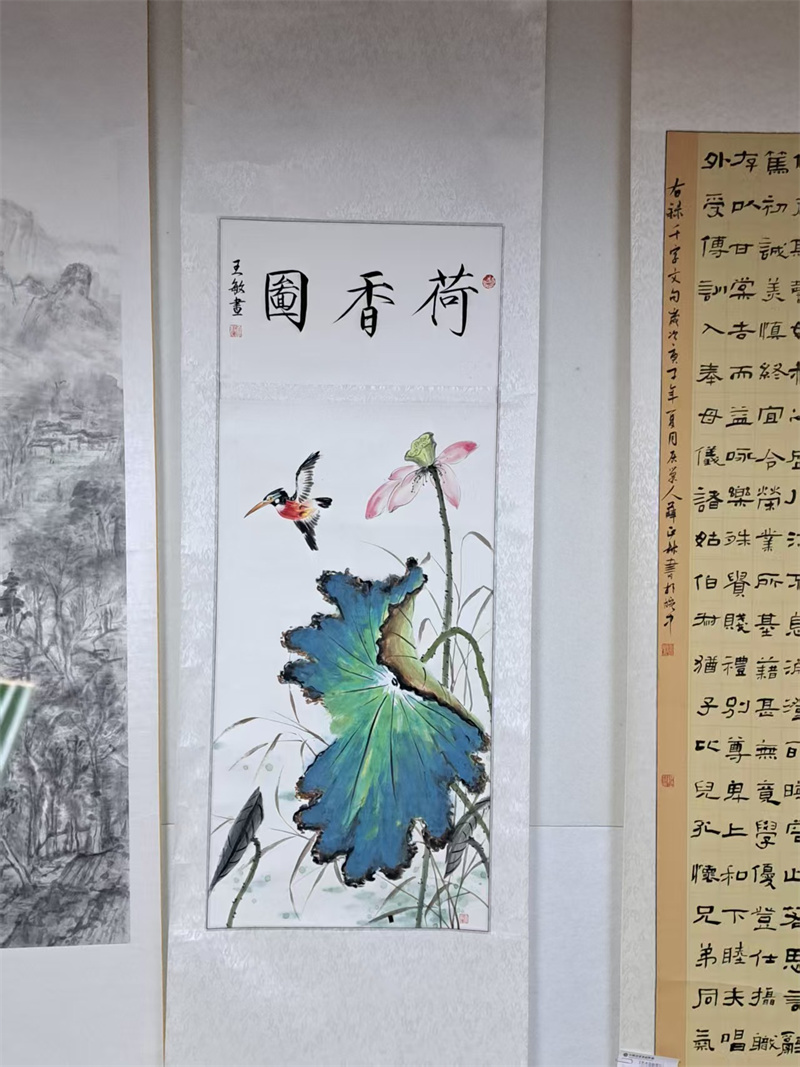 荷香圖
王敏畫
篤初誠美慎終宜令榮業所基藉甚無竟學優登仕攝職
存以甘棠去而益詠樂殊貴賤禮別尊卑上和下睦夫唱
外受傅訓入奉母儀諸姑伯叔猶子比兒孔懷兄弟同氣
右録千字文句歲次庚子年夏月